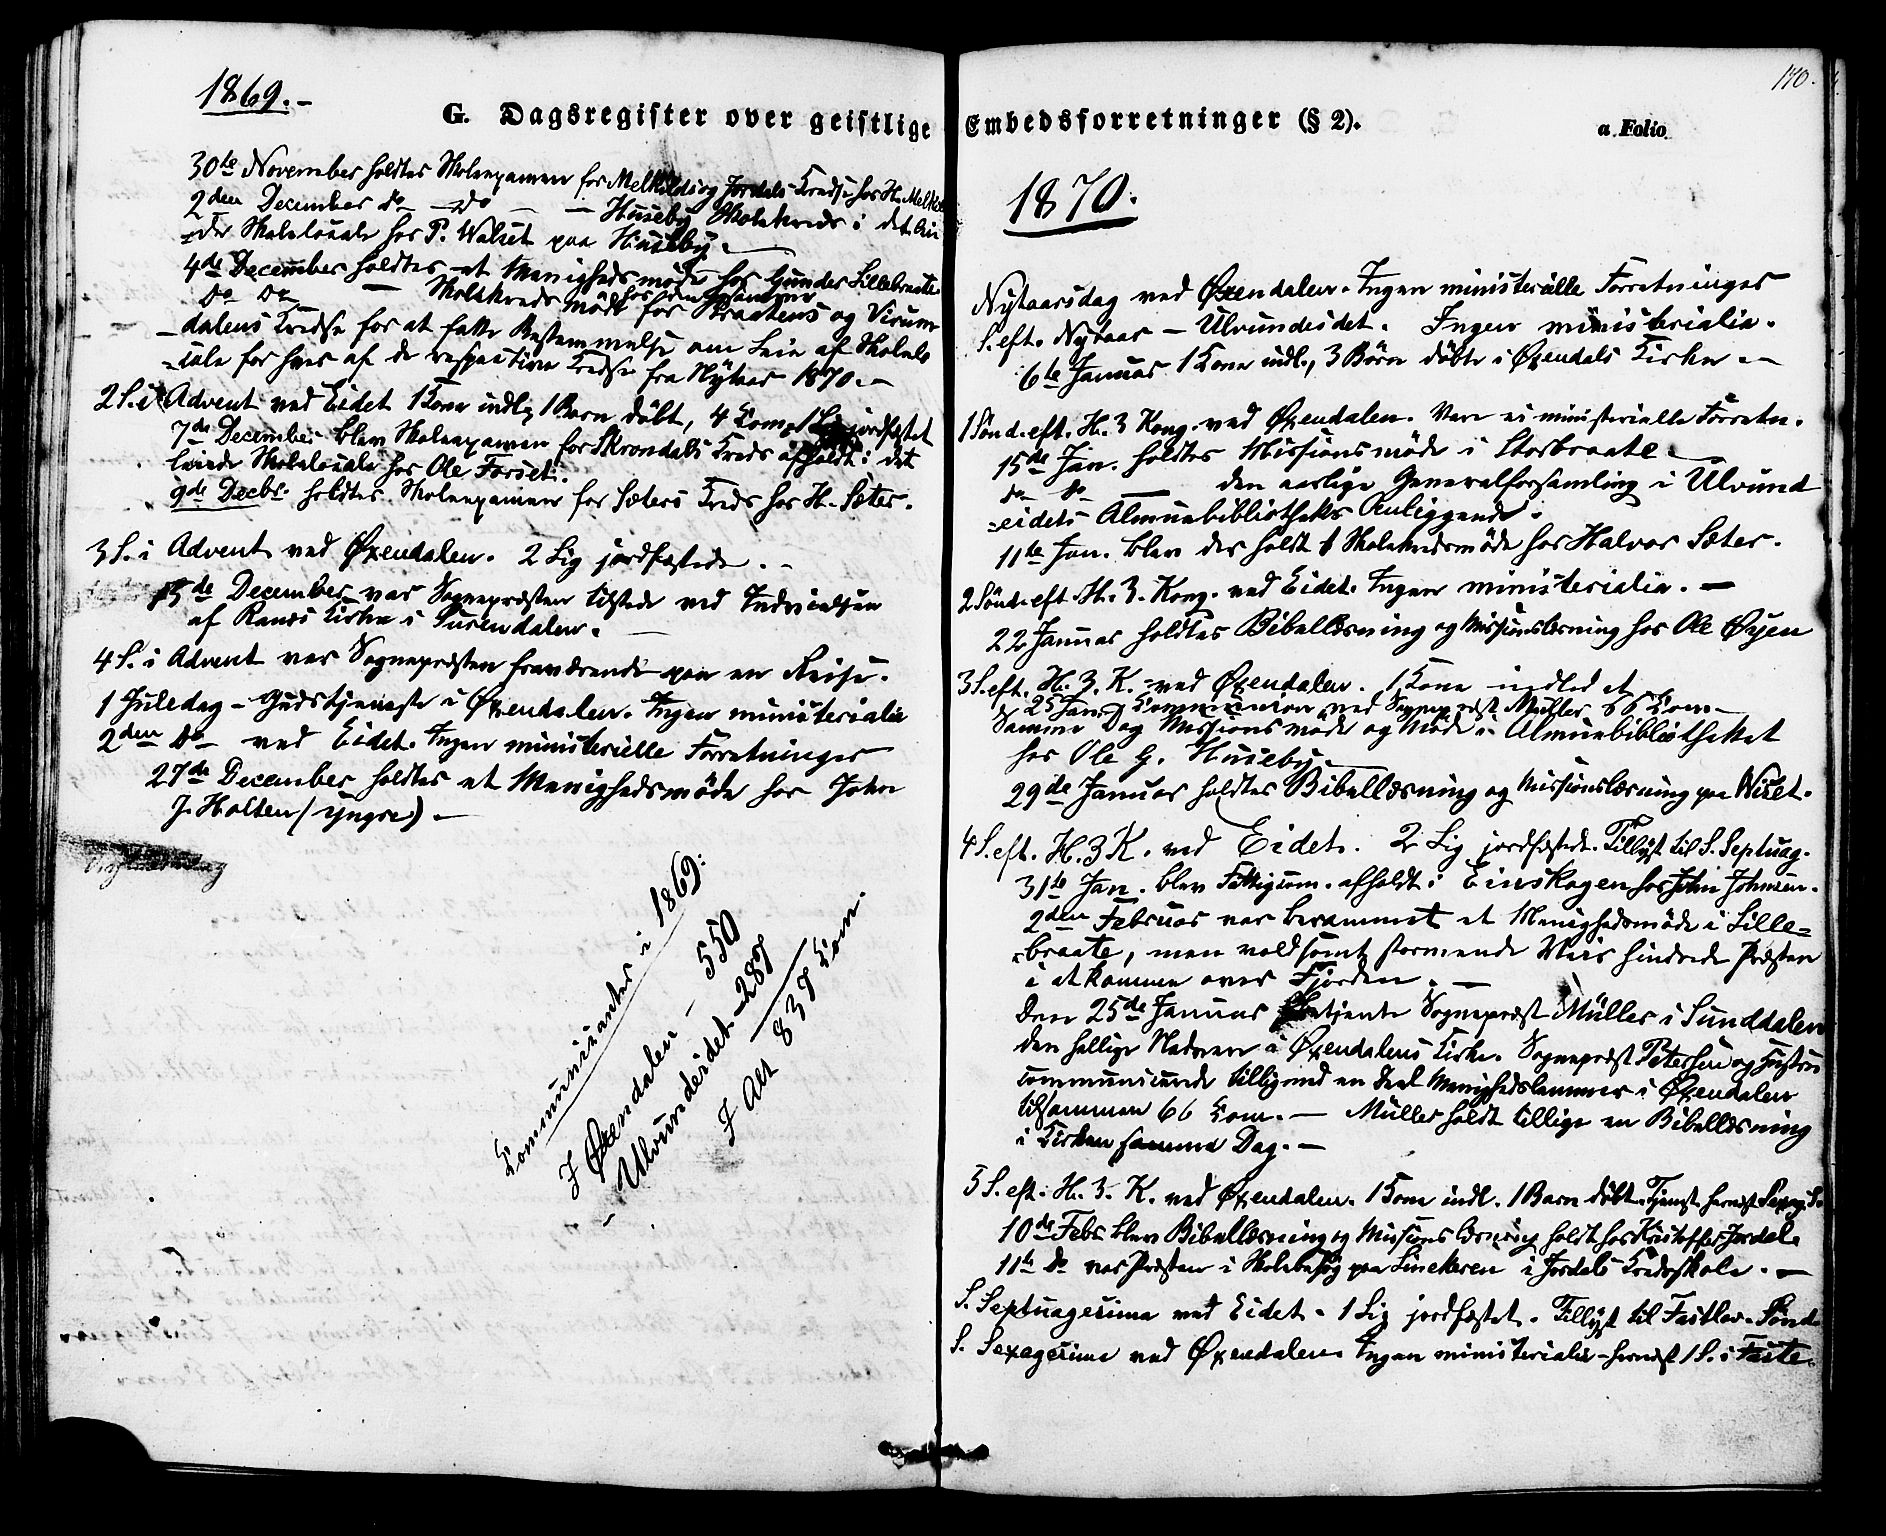 1869.-
G. Dagsregister over geistlige
30te November holdtes Skoleexamen for Melkilds og Jordals Kredse hos H. Melkild
2den December do — do — — Huseby Skolekreds i det
Skolelocale hos P. Walset paa Huseby. —
4de December holdtes et Menighedsmøde hos Gunder Lillebraate
do do — Skolekreds Møde for Braatens og Virum
hos den samme
dalens Kredse for at fatte Bestemmelse om Leie af Skolelo
=cale for hver af de respective Kredse fra Nytaar 1870. —
2 S. i Advent ved Eidet 1 Kone indl., 1 Barn døbt, 4 Com., 1 Lig jordfæstet
7de December blev Skoleexamen for Skrondals Kreds afholdt i det
leiede Skolelocale hos Ole Forset.
9de Decbr. holdtes Skoleexamen for Sæters Kreds hos H. Sæter.
3 S. i Advent ved Øxendalen. 2 Lig jordfæstede. -
15de December var Sognepræsten tilstede ved Indvielsen
af Ranes Kirke i Surendalen. —
4 S. i Advent var Sognepræsten fraværende paa en Reise.
1 Juledag - Gudstjeneste i Øxendalen. Ingen ministerialia
2den do - ved Eidet. Ingen ministerielle Forretninger
27de December holdtes et Menighedsmøde hos John
J. Holten (yngre). —
Communicanter i 1869:
I Øxendalen - 550
- Ulvundeidet - 287
I Alt 837 Com.
170.
Embedsforretninger (§ 2).
a. Folio
1870.
Nytaarsdag ved Øxendalen. Ingen ministerielle Forretninger
S. eft. Nytaar - Ulvundeidet. Ingen ministerialia.
6te Januar 1 Kone indl., 3 Børn døbte i Øxendals Kirke. —
1 Sønd. eft. H. 3 Kong. ved Øxendalen. Vare ei ministerielle Forretn.
15de Jan. holdtes Missionsmøde i Storbraate. —
do do — den aarlige Generalforsamling i Ulvund
=eidets Almuebibliotheks Anliggende.
11te Jan. blev der holdt Skolekredsmøde hos Halvor Sæter.
2 Sønd. eft. H. 3. Kong. ved Eidet. Ingen ministerialia. —
22 Januar holdtes Bibellæsning og Missionslæsning hos Ole Øyen
3 S. eft. H. 3. K. - ved Øxendalen. 1 Kone indledet
25 Jan. Communion ved Sognepræst Müller 66 Com —
Samme Dag Missionsmøde og Møde i Almuebibliotheket
hos Ole G. Huseby. —
29de Januar holdtes Bibellæsning og Missionslæsning paa Wiset.
4 S. eft. H. 3 K. ved Eidet. 2 Lig jordfæstede. Tillyst til S. Septuag.
31te Jan. blev Fattigcom. afholdt i Einskagen hos John Johnsen.
2den Februar var berammet et Menighedsmøde i Lille=
=braate, men voldsomt stormende Veir hindrede Præsten
i at komme over Fjorden. —
Den 25de Januar betjente Sognepræst Müller i Sunddalen
den hellige Nadvere i Øxendalens Kirke. Sognepræst Petersen og Hustru
communicerede tilligemed en Deel Menighedslemmer i Øxendalen
tilsammen 66 Com. — Müller holdt tillige en Bibellæsning
i Kirken samme Dag. —
5 S. eft. H. 3. K. ved Øxendalen. 1 Kone indl. 1 Barn døbt. Tjenst. hernæst Sexag. S.
10de Febr blev Bibellæsning og Missionslæsning holdt hos Kristoffer Jordal.
11te do var Præsten i Skolebesøg paa Linekeren i Jordals Kredsskole. —
S. Septuagesima ved Eidet. 1 Lig jordfæstet. Tillyst til Fastelav. Sønd.
S. Sexagesima ved Øxendalen Ingen ministerialia - hernæst 1 S. i Faste.